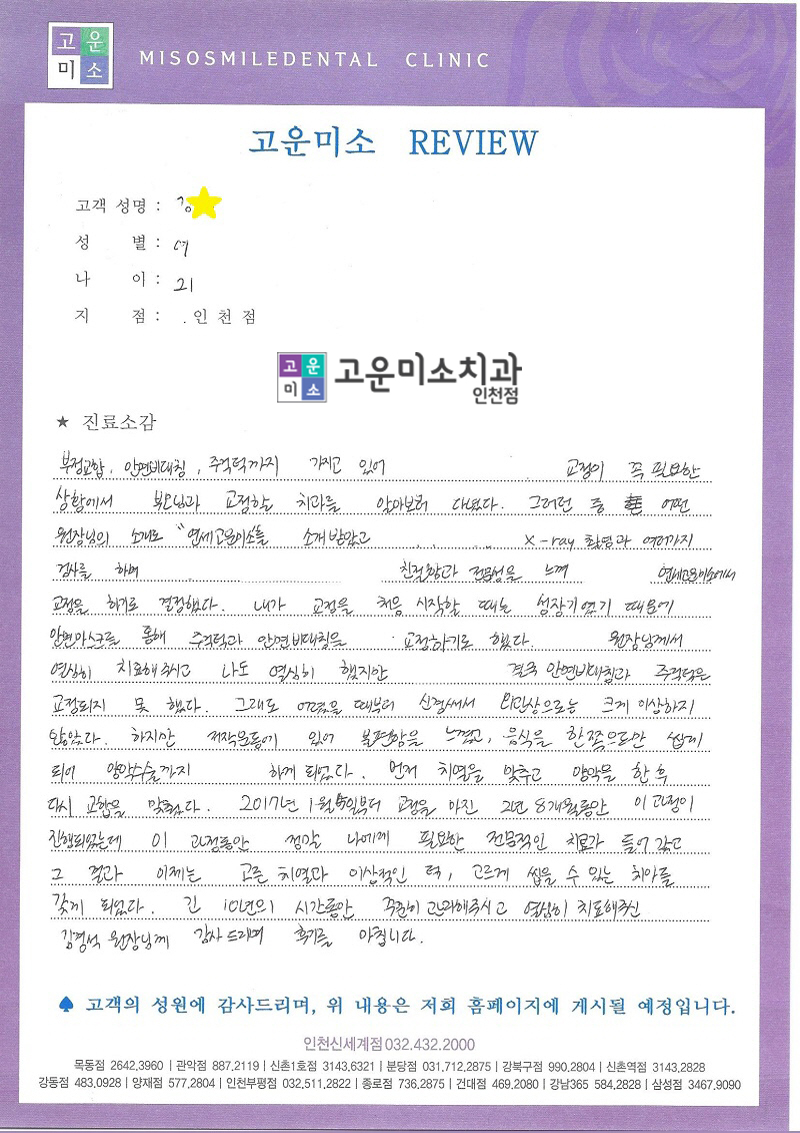 고운
미소
MISOSMILEDENTAL CLINIC
고운미소 REVIEW
고객 성명 : 김
성 별 : 여
나 이 : 21
지 점 : . 인 천 점
고운
미소
고운미소치과
인천점
★ 진료소감
부정교합, 안면비대칭, 주걱턱까지 가지고 있어 교정이 꼭 필요한
상황에서 부모님과 교정할 치과를 알아보러 다녔다. 그러던 중 어떤
원장님의 소개로 "연세고운미소를 소개받았고 X-ray 촬영과 여러가지
검사를 하며 친절함과 전문성을 느껴 연세고운미소에서
교정을 하기로 결정했다. 내가 교정을 처음 시작할 때는 성장기였기 때문에
안면마스크를 통해 주걱턱과 안면비대칭을 교정하기로 했다. 원장님께서
열심히 치료해주시고 나도 열심히 했지만 결국 안면비대칭과 주걱턱은
교정되지 못 했다. 그래도 어렸을 때부터 신경써서 외관상으로는 크게 이상하지
않았다. 하지만 저작운동에 있어 불편함을 느꼈고, 음식을 한쪽으로만 씹게
되어 양악수술까지 하게 되었다. 먼저 치열을 맞추고 양악을 한 후
다시 교합을 맞췄다. 2017년 1월 일부터 교정을 마친 2년 8개월동안 이 과정이
진행되었는데 이 과정동안 정말 나에게 필요한 전문적인 치료가 들어갔고
그 결과 이제는 고른 치열과 이상적인 턱, 고르게 씹을 수 있는 치아를
갖게 되었다. 긴 10년의 시간동안 꾸준히 관리해주시고 열심히 치료해주신
김경석 원장님께 감사드리며 후기를 마칩니다.
♠ 고객의 성원에 감사드리며, 위 내용은 저희 홈페이지에 게시될 예정입니다.
인천신세계점 032.432.2000
목동점 2642.3960 | 관악점 887.2119 | 신촌1호점 3143.6321 | 분당점 031.712.2875 | 강북구점 990.2804 | 신촌역점 3143.2828
강동점 483.0928 | 양재점 577.2804 | 인천부평점 032.511.2822 | 종로점 736.2875 | 건대점 469.2080 | 강남365 584.2828 | 삼성점 3467.9090